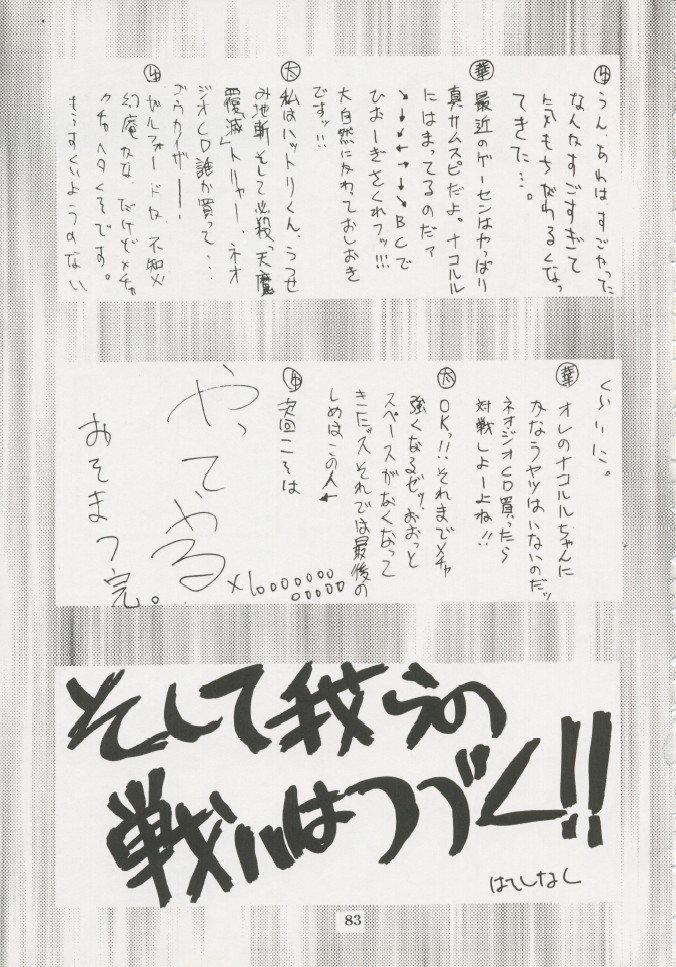 うん、あれはすごかった
なんかすごすぎて
気もちがわるくなっ
てきた…。
華 最近のゲーセンはやっぱり
真サムスピだよ。ナコルル
にはまってるのだァ
↘→↓↙←→↓↘BCで
ひおーぎさくれフッ!!!
大自然にかわっておしおき
ですッ!!
大 私はハットリくん、うつせ
み地斬そして必殺「天魔
覆滅」トリャー、ネオ
ジオCD誰か買って…
ゴウカイザー——
ガルフォードな不知火
幻庵かな、だけどメチャ
クチャヘタくそです。
もうすくいようのない
くらいに。
華 オレのナコルルちゃんに
かなうヤツはいないのだッ
ネオジオCD買ったら
対戦しよーよね!!
大 OKっ!!それまでメチャ
強くなるゼッ、おおっと
スペースがなくなって
きたッスそれでは最後の
しめはこの人←
次回こそは
やってやる
×1000000000000
おそまつ完。
そして我らの
戦いはつづく!!
はてしなし
83